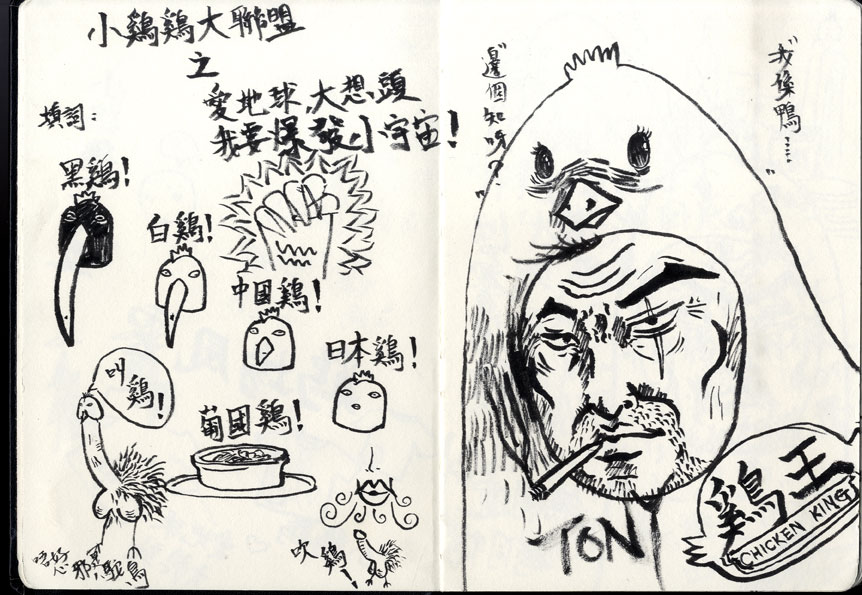 小鷄鷄大聯盟
之
愛地球,大想頭
我要爆發小宇宙!
填詞:
黑鷄!
白鷄!
中國鷄!
日本鷄!
叫鷄!
葡國鷄!
吹鷄!
唔好
邪惡駝鳥
"邊個知呀?"
"我係鴨……"
TON
鷄王
CHICKEN KING